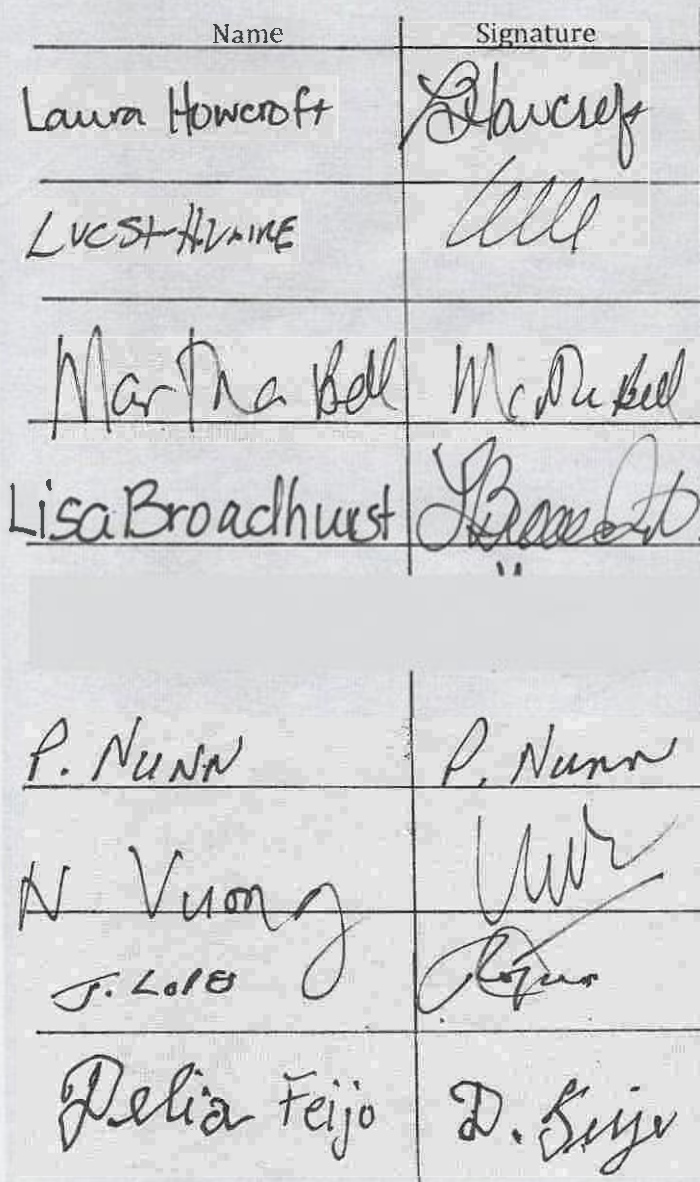 Name Signature
Laura Howcroft LHowcroft
Luc St-Hilaire
Martha Bell Martha Bell
Lisa Broadhurst
P. NUNN P. Nunn
N Vuong
J. LOPES
Delia Feijo D. Feijo